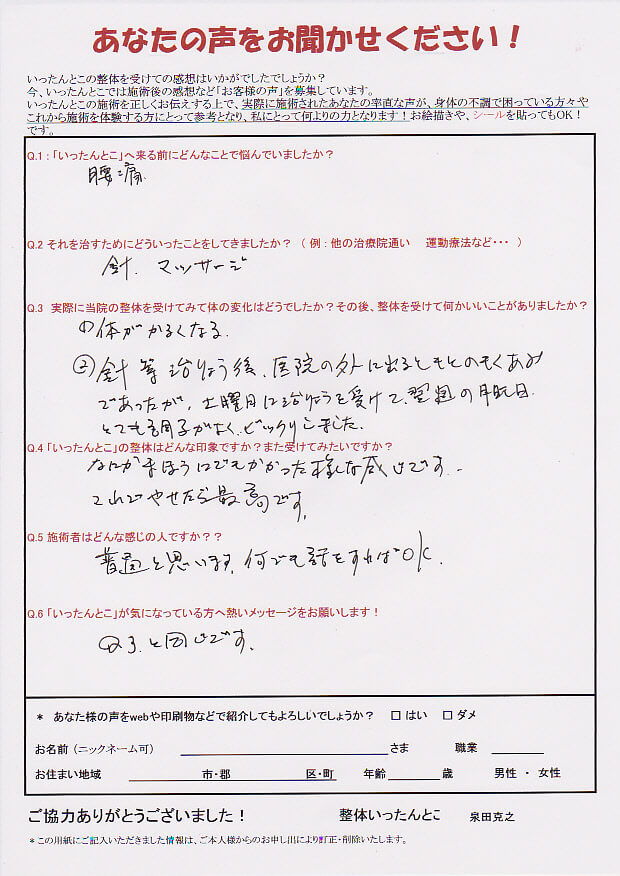 あなたの声をお聞かせください！
いったんとこの整体を受けての感想はいかがでしたでしょうか？
今、いったんとこでは施術後の感想など「お客様の声」を募集しています。
いったんとこの施術を正しくお伝えする上で、実際に施術されたあなたの率直な声が、身体の不調で困っている方々や
これから施術を体験する方にとって参考となり、私にとって何よりの力となります！お絵描きや、シールを貼ってもOK！
です。
Q.1：「いったんとこ」へ来る前にどんなことで悩んでいましたか？
腰痛
Q.2 それを治すためにどういったことをしてきましたか？（ 例：他の治療院通い 運動療法など・・・ ）
針. マッサージ
Q.3 実際に当院の整体を受けてみて体の変化はどうでしたか？その後、整体を受けて何かいいことがありましたか？
①体がかるくなる.
②針等治りょう後、医院の外に出るともとのもくあみ
であったが、土曜日に治りょうを受けて、翌週の月曜日
とても調子がよく、ビックリしました.
Q.4「いったんとこ」の整体はどんな印象ですか？また受けてみたいですか？
なにかまほうにでもかかった様な感じです.
これでやせたら最高です.
Q.5 施術者はどんな感じの人ですか？？
普通と思います. 何でも話をすればOK.
Q.6「いったんとこ」が気になっている方へ熱いメッセージをお願いします！
Q3.と同じです.
＊ あなた様の声をwebや印刷物などで紹介してもよろしいでしょうか？ □ はい □ ダメ
お名前（ニックネーム可） さま 職業
お住まい地域 市・郡 区・町 年齢 歳 男性 ・ 女性
ご協力ありがとうございました！ 整体いったんとこ 泉田克之
＊この用紙にご記入いただきました情報は、ご本人様からのお申し出により訂正・削除いたします。